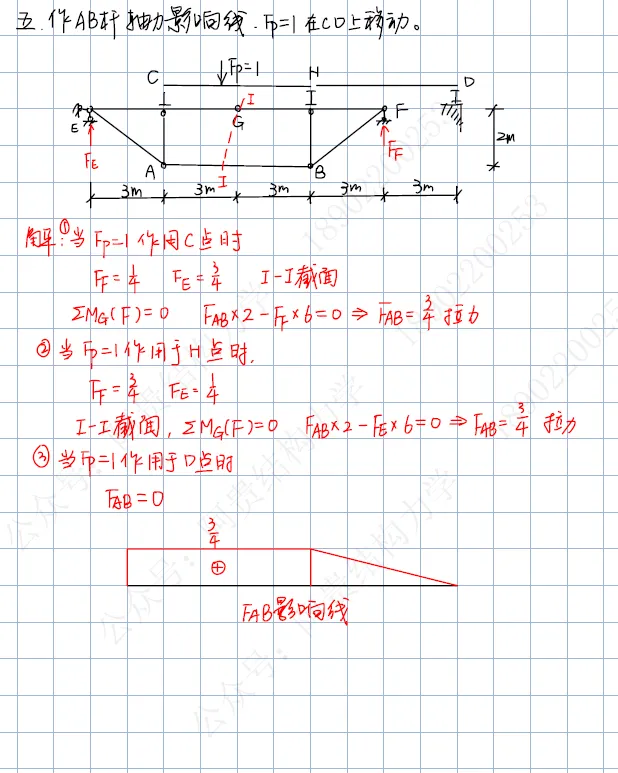 五.作AB杆轴力影响线.Fp=1在CD上移动。
C Fp=1 H D
I I I I
E G F
FE FF 2m
A I B
3m 3m 3m 3m 3m
解:①当Fp=1作用C点时
FF=1/4 FE=3/4 I-I截面
ΣMG(F)=0 FAB×2-FF×6=0⇒FAB=3/4 拉力
②当Fp=1作用于H点时,
FF=3/4 FE=1/4
I-I截面,ΣMG(F)=0 FAB×2-FE×6=0⇒FAB=3/4 拉力
③当Fp=1作用于D点时
FAB=0
3/4
⊕
FAB影响线
18902200253
18902200253